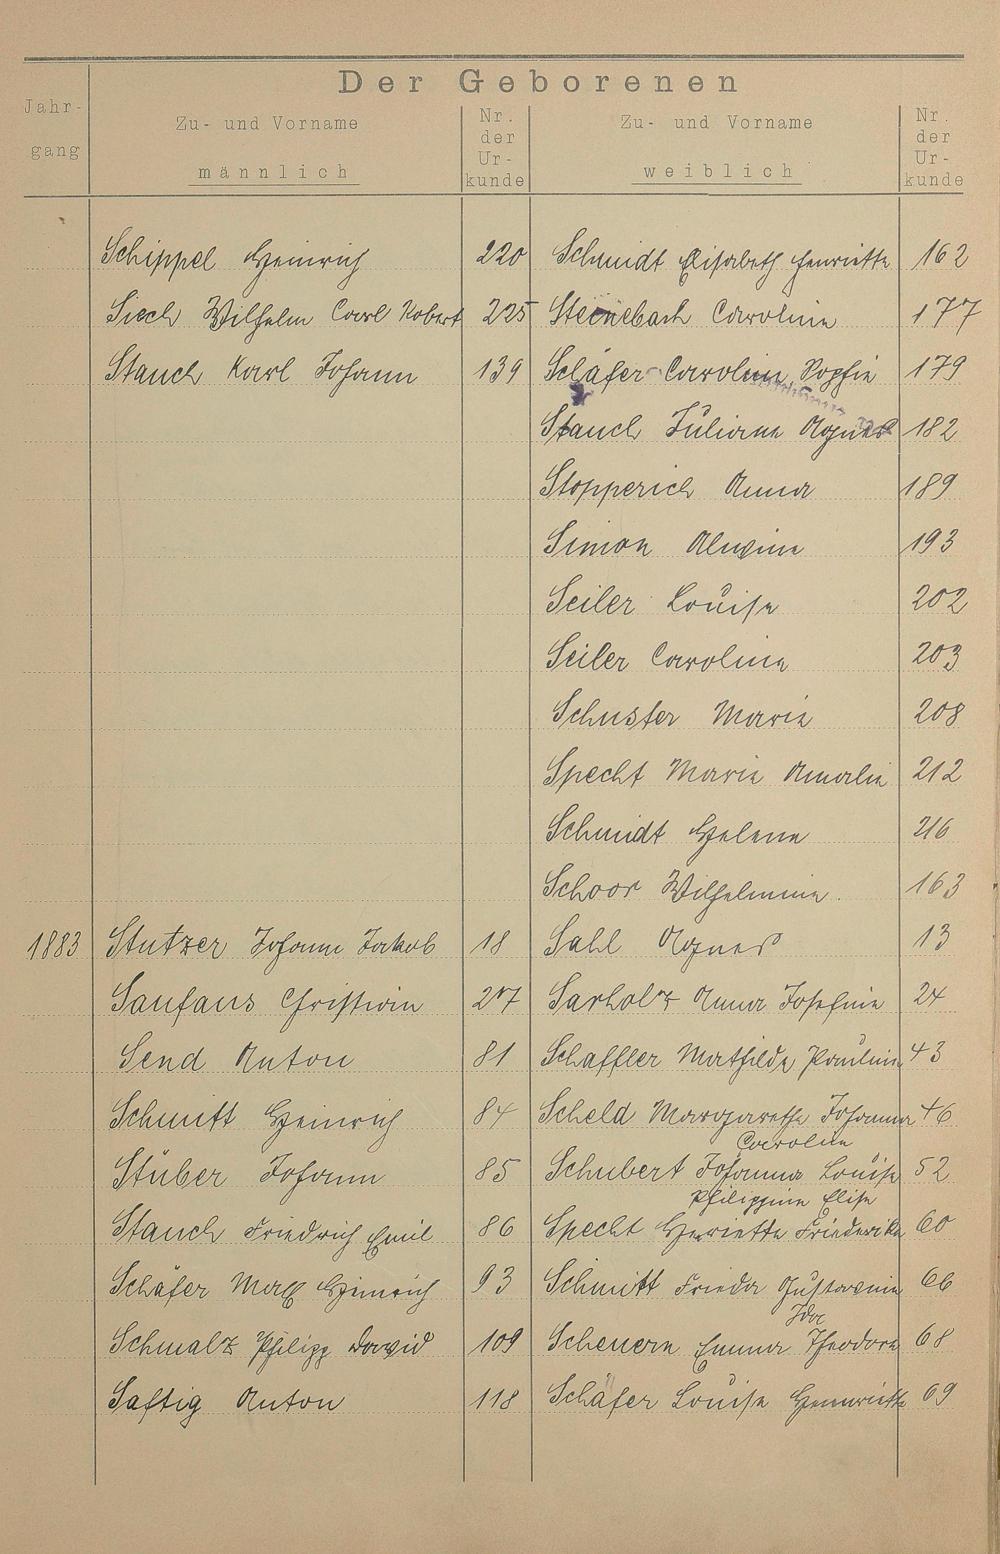 Der Geborenen
Jahr-
gang
Zu- und Vorname
männlich
Nr.
der
Ur-
kunde
Zu- und Vorname
weiblich
Nr.
der
Ur-
kunde
Schippel Heinrich 220 Schmidt Elisabeth Henriette 162
Siech Wilhelm Carl Robert 225 Steinebach Caroline 177
Stauch Karl Johann 139 Schäfer Carolina Sophie 179
Stauch Juliane Agnes 182
Stopperich Anna 189
Simon Alwine 193
Seiler Louise 202
Seiler Caroline 203
Schuster Marie 208
Specht Marie Amalie 212
Schmidt Helene 216
Schoor Wilhelmine. 163
1883 Stutzer Johann Jakob 18 Sahl Agnes 13
Saufaus Christian 27 Sarholz Anna Josefine 24
Send Anton 81 Schaffler Mathilde Pauline 43
Schmitt Heinrich 84 Scheld Margarethe Johanna 46
Caroline
Stüber Johann 85 Schubert Johanna Louise 52
Philippine Elise
Stauch Friedrich Emil 86 Specht Henriette Friederike 60
Schäfer Max Heinrich 93 Schmitt Frieda Gustavine 66
Ida
Schmalz Philipp David 109 Scheuern Emma Theodore 68
Saftig Anton 118 Schäfer Louise Henriette 69